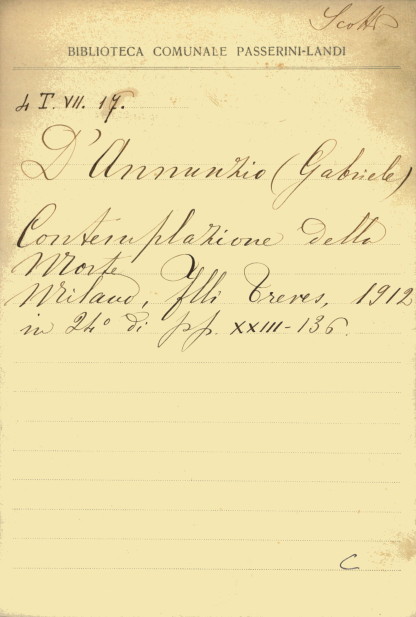 Scotti
BIBLIOTECA COMUNALE PASSERINI-LANDI
4 T. VII. 17.
D'Annunzio (Gabriele)
Contemplazione della
Morte
Milano, Flli Treves, 1912
in 24° di pp. XXIII-136.
C